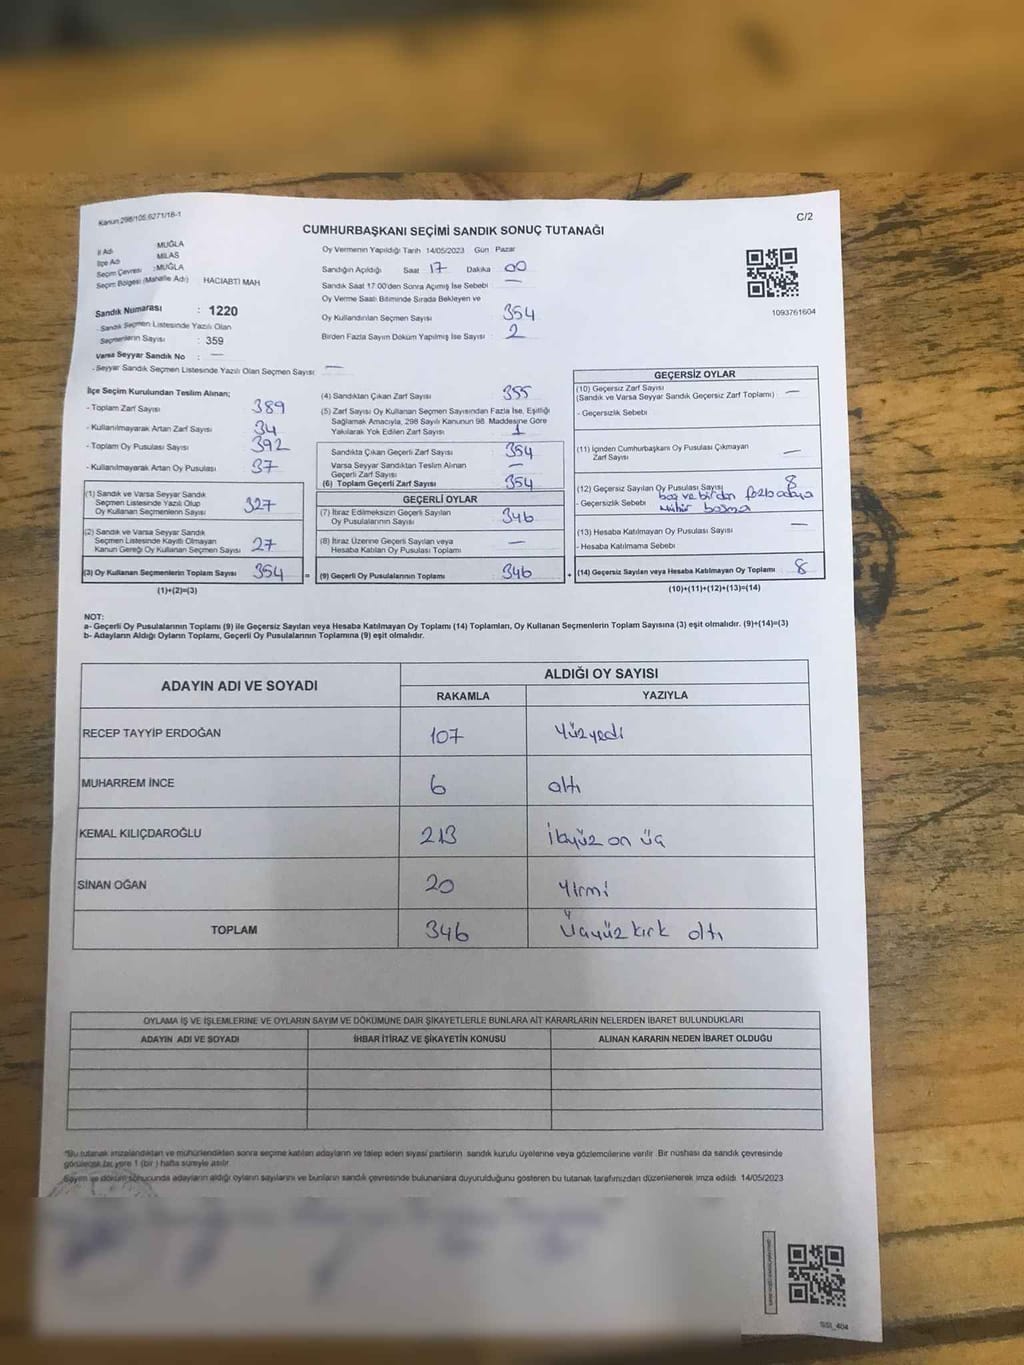 Kanun:298/105,6271/18-1
C/2
CUMHURBAŞKANI SEÇİMİ SANDIK SONUÇ TUTANAĞI
İl Adı : MUĞLA
İlçe Adı : MİLAS
Seçim Çevresi : MUĞLA
Seçim Bölgesi (Mahalle Adı) : HACIABTİ MAH
Sandık Numarası : 1220
- Sandık Seçmen Listesinde Yazılı Olan
Seçmenlerin Sayısı : 359
Varsa Seyyar Sandık No : —
- Seyyar Sandık Seçmen Listesinde Yazılı Olan Seçmen Sayısı : —
Oy Vermenin Yapıldığı Tarih 14/05/2023 Gün Pazar
Sandığın Açıldığı Saat 17 Dakika 00
Sandık Saat 17:00'den Sonra Açımış İse Sebebi : —
Oy Verme Saati Bitiminde Sırada Bekleyen ve
Oy Kullandırılan Seçmen Sayısı : 354
Birden Fazla Sayım Döküm Yapılmış İse Sayısı : 2
1093761604
İlçe Seçim Kurulundan Teslim Alınan;
- Toplam Zarf Sayısı 389
- Kullanılmayarak Artan Zarf Sayısı 34
- Toplam Oy Pusulası Sayısı 392
- Kullanılmayarak Artan Oy Pusulası 37
(1) Sandık ve Varsa Seyyar Sandık
Seçmen Listesinde Yazılı Olup
Oy Kullanan Seçmenlerin Sayısı 327
(2) Sandık ve Varsa Seyyar Sandık
Seçmen Listesinde Kayıtlı Olmayan
Kanun Gereği Oy Kullanan Seçmen Sayısı 27
(3) Oy Kullanan Seçmenlerin Toplam Sayısı 354 =
(1)+(2)=(3)
(4) Sandıktan Çıkan Zarf Sayısı : 355
(5) Zarf Sayısı Oy Kullanan Seçmen Sayısından Fazla İse, Eşitliği
Sağlamak Amacıyla, 298 Sayılı Kanunun 98. Maddesine Göre
Yakılarak Yok Edilen Zarf Sayısı : 1
Sandıkta Çıkan Geçerli Zarf Sayısı : 354
Varsa Seyyar Sandıktan Teslim Alınan
Geçerli Zarf Sayısı : —
(6) Toplam Geçerli Zarf Sayısı : 354
GEÇERLİ OYLAR
(7) İtiraz Edilmeksizin Geçerli Sayılan
Oy Pusulalarının Sayısı : 346
(8) İtiraz Üzerine Geçerli Sayılan veya
Hesaba Katılan Oy Pusulası Toplamı : —
(9) Geçerli Oy Pusulalarının Toplamı : 346 +
GEÇERSİZ OYLAR
(10) Geçersiz Zarf Sayısı : —
(Sandık ve Varsa Seyyar Sandık Geçersiz Zarf Toplamı)
- Geçersizlik Sebebi
(11) İçinden Cumhurbaşkanı Oy Pusulası Çıkmayan
Zarf Sayısı : —
(12) Geçersiz Sayılan Oy Pusulası Sayısı : 8
- Geçersizlik Sebebi boş ve birden fazla adaya
mühür basma
(13) Hesaba Katılmayan Oy Pusulası Sayısı : —
- Hesaba Katılmama Sebebi
(14) Geçersiz Sayılan veya Hesaba Katılmayan Oy Toplamı : 8
(10)+(11)+(12)+(13)=(14)
NOT:
a- Geçerli Oy Pusulalarının Toplamı (9) ile Geçersiz Sayılan veya Hesaba Katılmayan Oy Toplamı (14) Toplamları, Oy Kullanan Seçmenlerin Toplam Sayısına (3) eşit olmalıdır. (9)+(14)=(3)
b- Adayların Aldığı Oyların Toplamı, Geçerli Oy Pusulalarının Toplamına (9) eşit olmalıdır.
ADAYIN ADI VE SOYADI
ALDIĞI OY SAYISI
RAKAMLA YAZIYLA
RECEP TAYYİP ERDOĞAN 107 Yüzyedi
MUHARREM İNCE 6 altı
KEMAL KILIÇDAROĞLU 213 İkiyüz on üç
SİNAN OĞAN 20 Yirmi
TOPLAM 346 Üçyüz kırk altı
OYLAMA İŞ VE İŞLEMLERİNE VE OYLARIN SAYIM VE DÖKÜMÜNE DAİR ŞİKAYETLERLE BUNLARA AİT KARARLARIN NELERDEN İBARET BULUNDUKLARI
ADAYIN ADI VE SOYADI İHBAR İTİRAZ VE ŞİKAYETİN KONUSU ALINAN KARARIN NEDEN İBARET OLDUĞU
"Bu tutanak imzalandıktan ve mühürlendikten sonra seçime katılan adayların ve talep eden siyasi partilerin sandık kurulu üyelerine veya gözlemcilerine verilir. Bir nüshası da sandık çevresinde
görülecek bir yere 1 (bir) hafta süreyle asılır.
Sayım ve döküm sonucunda adayların aldığı oyların sayılarını ve bunların sandık çevresinde bulunanlara duyurulduğunu gösteren bu tutanak tarafımızdan düzenlenerek imza edildi. 14/05/2023
SSI_404